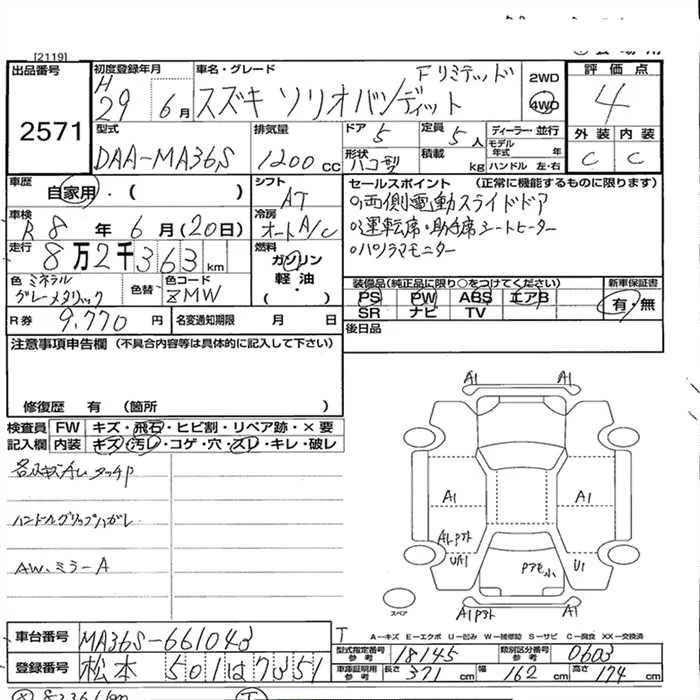 [2119]
出品番号
2571
初度登録年月
H
29 6月
車名・グレード
Fリミテッド
スズキ ソリオバンディット
2WD
4WD
評価点
4
外装 内装
C C
型式
DAA-MA36S
排気量
1200 CC
ドア 5
定員 5人
形状
ハコ型
積載 kg
ディーラー・並行
モデル年式 年
ハンドル 左・右
車歴
自家用・( )
シフト
AT
セールスポイント (正常に機能するものに限ります)
○両側電動スライドドア
○運転席・助手席シートヒーター
○パノラマモニター
車検
R8年 6月(20日)
冷房
オートA/C
走行
8万2千363km
燃料
ガソリン
軽油・
( )
色 ミネラル
グレーメタリック
色替
色コード
ZMW
装備品(純正品に限り○をつけてください)
PS PW ABS エアB
SR ナビ TV
新車保証書
有 無
R券 9,770円
名変通知期限 月 日
後日品
注意事項申告欄 (不具合内容等は具体的に記入して下さい)
修復歴 有 (箇所 )
検査員記入欄
FW キズ・飛石・ヒビ割・リペア跡・×要
内装 キズ・汚レ・コゲ・穴・スレ・キレ・破レ
ハンドルグリップハガレ
AW、ミラーA
A1 A1
A1 A1
UA1 U1
A1 A1
スペア
A-キズ E-エクボ U-凹み W-補修跡 S-サビ C-腐食 XX-交換済
車台番号
MA36S-661043
型式指定番号 参考
18145
類別区分番号 参考
0603
登録番号
松本 501は7351
車庫証明用 参考
長さ 371cm 幅 162cm 高さ 174cm